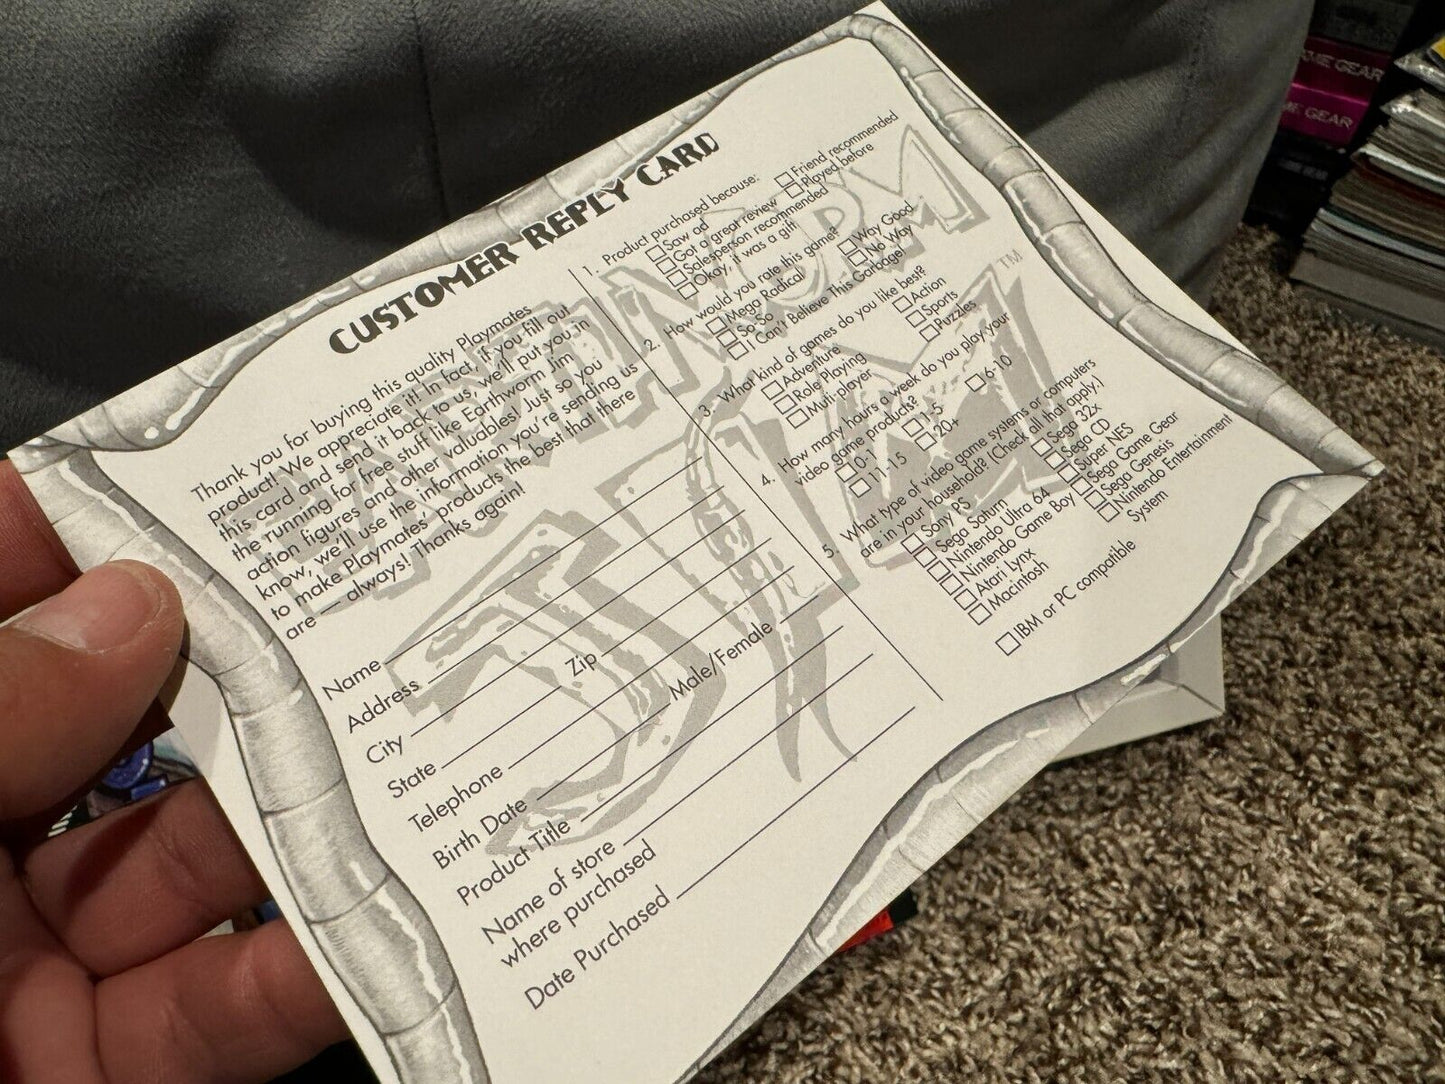 CUSTOMER REPLY CARD
Thank you for buying this quality Playmates
product! We appreciate it! In fact, if you fill out
this card and send it back to us, we'll put you in
the running for free stuff like Earthworm Jim
action figures and other valuables! Just so you
know, we'll use the information you're sending us
to make Playmates' products the best that there
are — always! Thanks again!
Name
Address
City
Zip
State
Telephone
Male/Female
Birth Date
Product Title
Name of store
where purchased
Date Purchased
1. Product purchased because:
Saw ad
Friend recommended
Got a great review
Played before
Salesperson recommended
Okay, it was a gift
2. How would you rate this game?
Mega Radical
Way Good
So So
No Way
I Can't Believe This Garbage!
3. What kind of games do you like best?
Adventure
Action
Role Playing
Sports
Multi-player
Puzzles
4. How many hours a week do you play your
video game products?
0-1
1-5
6-10
11-15
20+
5. What type of video game systems or computers
are in your household? (Check all that apply.)
Sony PS
Sega 32x
Sega Saturn
Sega CD
Nintendo Ultra 64
Super NES
Nintendo Game Boy
Sega Game Gear
Atari Lynx
Sega Genesis
Macintosh
Nintendo Entertainment
System
IBM or PC compatible
EARTHWORM
JIM
TM
GAME GEAR
GEAR